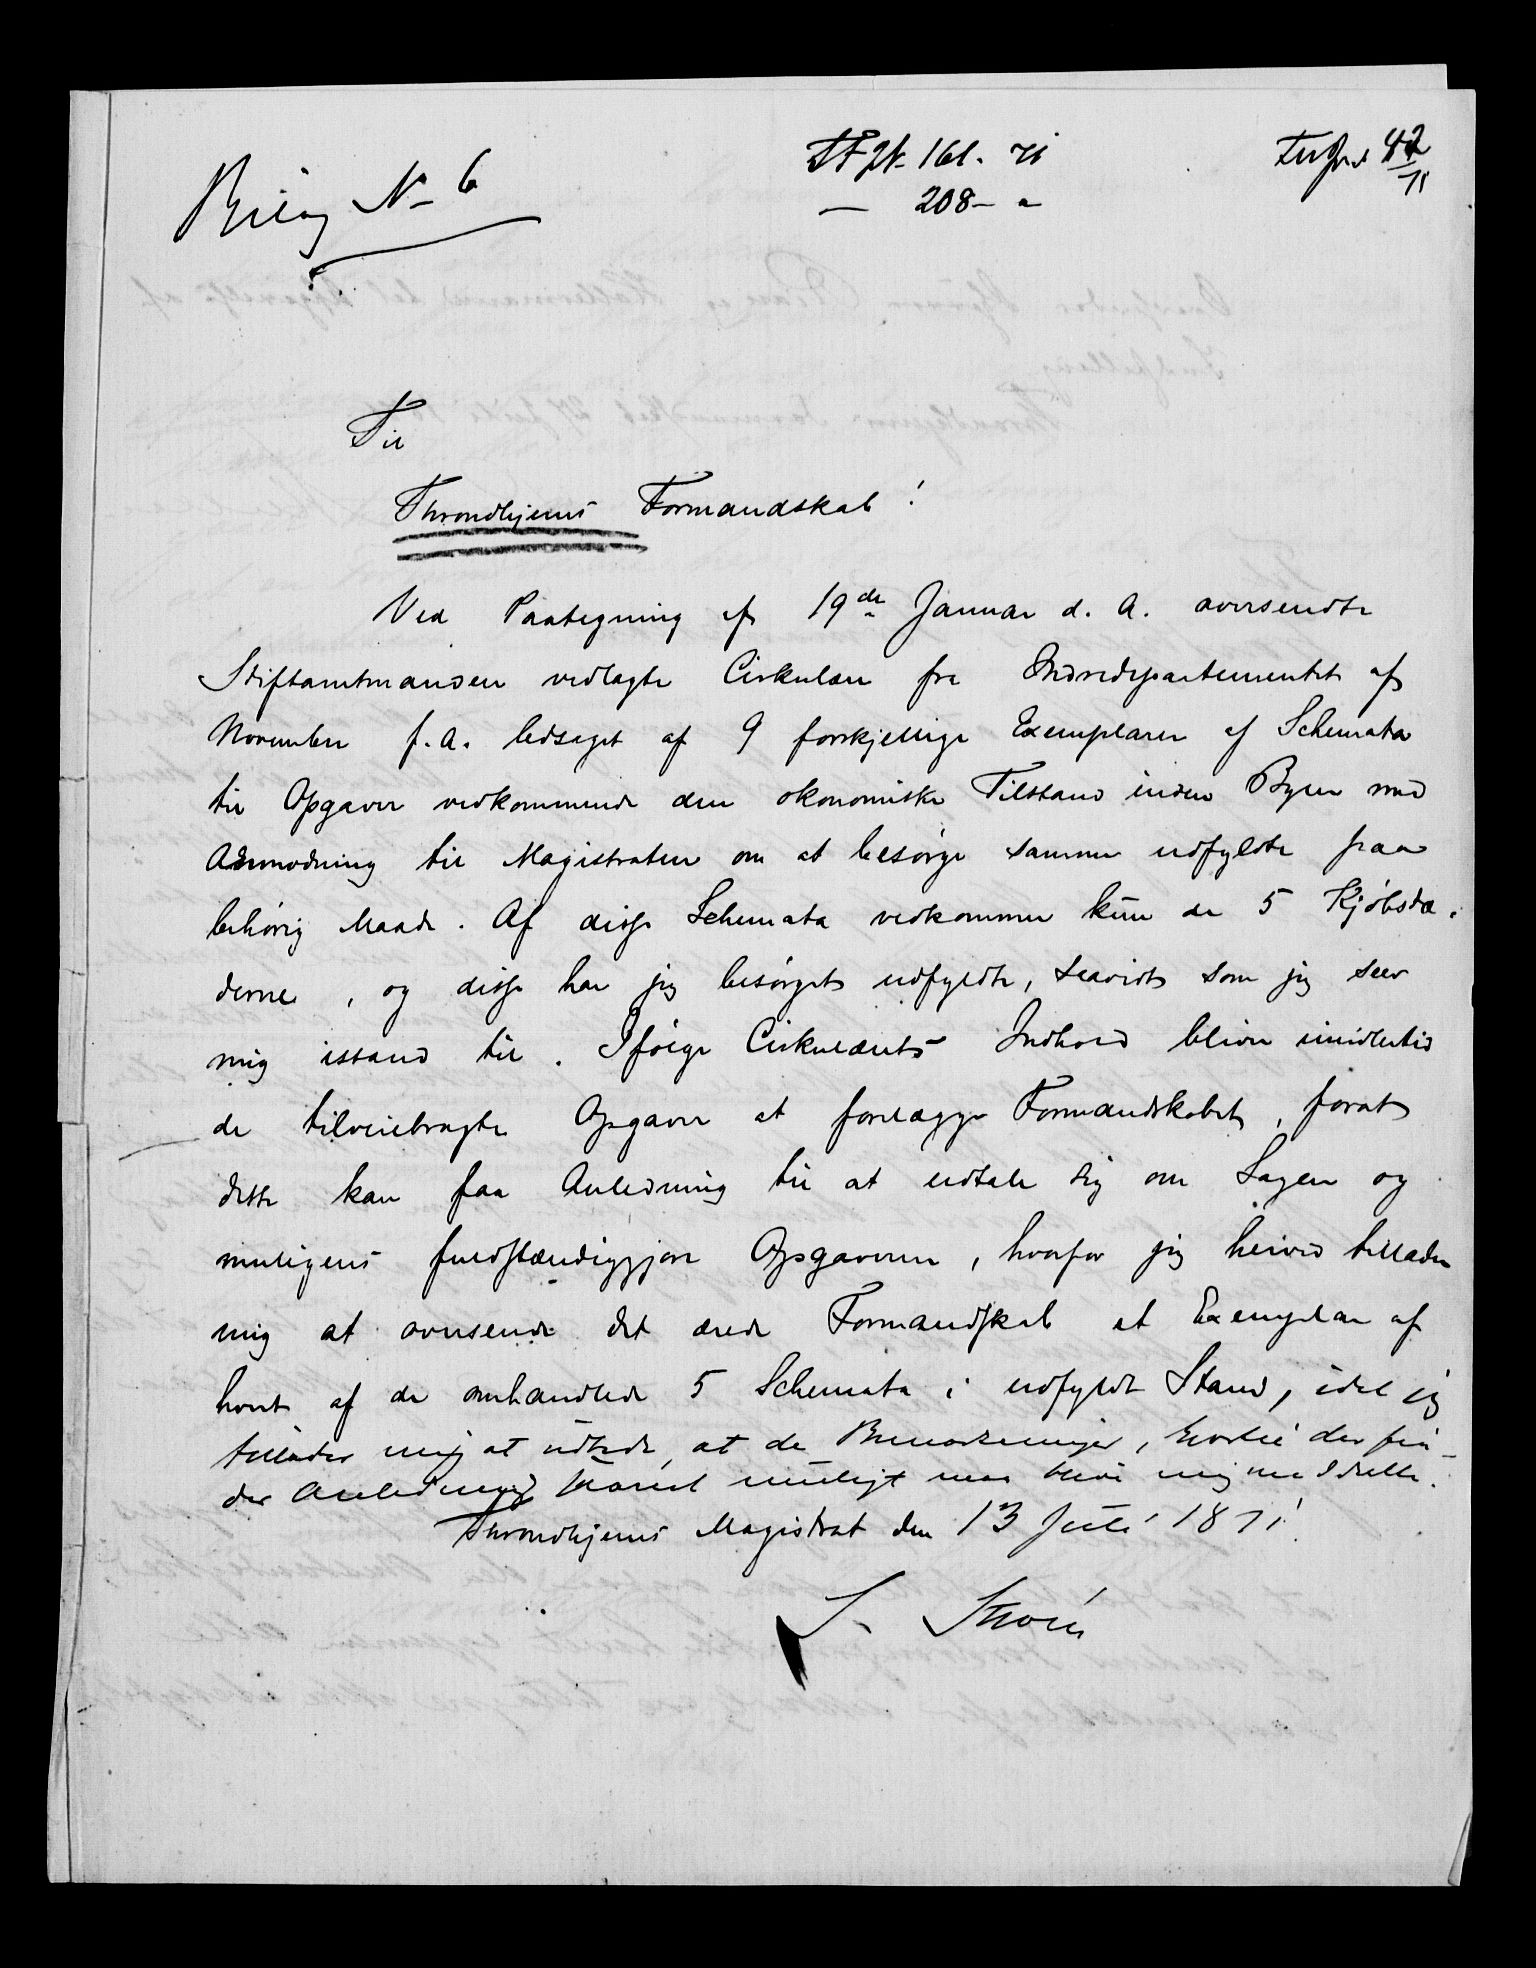 Bilag No 6
161. 71
— 208 - "
42
71
Til
Throndhjems Formandskab!
Ved Paategning af 19de Januar d. A. oversendte
Stiftamtmanden vedlagte Cirkulære fra Indredepartementet af
November f. A. ledsaget af 9 forskjellige Exemplarer af Schemata
til Opgaver vedkommende den økonomiske Tilstand inden Byen med
Anmodning til Magistraten om at besørge samme udfyldte paa
behørig Maade. Af disse Schemata vedkommer kun de 5 Kjøbstæ-
derne, og disse har jeg besørget udfyldte, saavidt som jeg saae
mig istand til. Ifølge Cirkulærets Indhold bliver imidlertid
de tilveiebragte Opgaver at forelægge Formandskabet, forat
dette kan faa Anledning til at udtale sig om Sagen og
muligens fuldstændiggjøre Opgaverne, hvorfor jeg herved tillader
mig at oversende det ærede Formandskab et Exemplar af
hvert af de omhandlede 5 Schemata i udfyldt Stand, idet jeg
tillader mig at udbede, at de Bemærkninger, hvortil der fin-
des Anledning snarest muligt maa blive mig meddelte.
Throndhjems Magistrat den 13 Juli 1871.